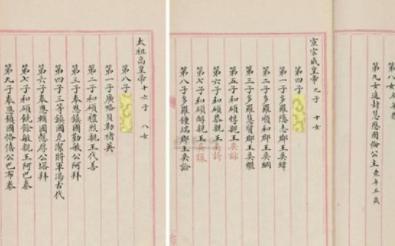 第九女追封慧愍固倫公主
宣宗成皇帝 九子 十女
第四子
第一子多羅隱志郡王奕緯
第二子多羅順和郡王奕綱
第三子多羅慧質郡王奕繼
第五子和碩惇親王奕誴
第六子和碩恭親王奕訢
第七子和碩醇親王奕譞
第八子多羅鍾端郡王奕詥
太祖高皇帝 十六子 八女
第八子
第一子廣略貝勒褚英
第二子和碩禮烈親王代善
第三子奉恩鎮國勤敏公阿拜
第四子三等鎮國克潔將軍湯古代
第六子奉恩輔國慤厚公塔拜
第七子和碩饒餘敏親王阿巴泰
第九子奉恩鎮國恪僖公巴布泰